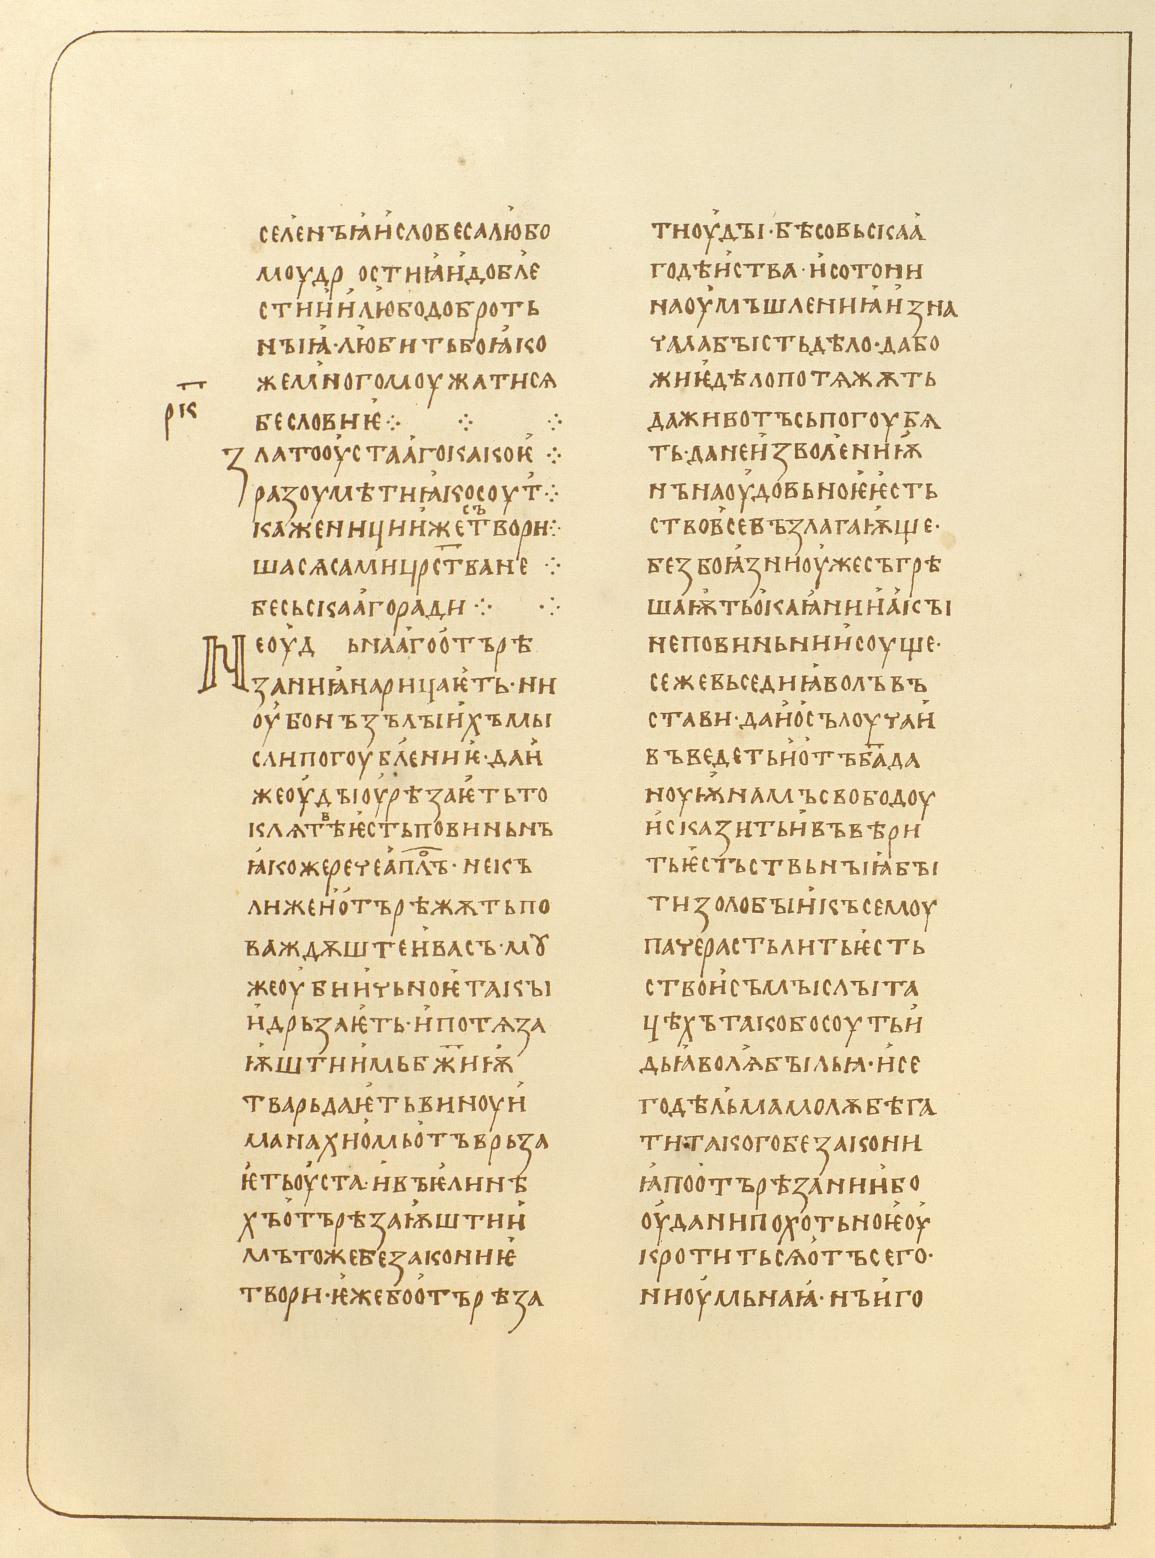 селенъꙗ и словеса любо
моудр остиꙗ и добле
стии и любодоброть
ныꙗ · любить бо ꙗко
же много моужатися
бесловиѥ ⁘ ⁘ ⁘
р҃к
златооустааго како ѥ ⁘
разоумѣти ꙗко соут ⁘
каженици иже сътвори ⁘
шася сами цр҃ства не ⁘
бесьскааго ради ⁘ ⁘
Неоуд ьнааго отърѣ
заниꙗ нарицаѥть · ни
оубо нъ зълыихъ мы
сли погоублениѥ · да и
же оуды оурѣзаѥть то
клятвѣ ѥсть повиньнъ
ꙗкоже рече ап҃лъ · не къ
ли же и отърѣжѫть по
важдѫштеи васъ · мꙋ
жеоубиичьноѥ такы
и дрьзаѥть · и потѧза
ѭштиимь б҃жиѭ
тварь даѥть виноу и
манахиомь отъврьза
ѥть оуста · и въ ѥлинѣ
хъ отърѣзаѭштии
мъ тоже безакониѥ
твори · ѥже бо отърѣза
тн оуды · бѣсовьскаа
го дѣиства · и сотони
на оумъшлениꙗ изна
чала бысть дѣло · да бо
жиѥ дѣло потѧжѫть
да животъ сь погоубѧ
ть · да не изволениѭ
нъ на оудовьноѥ ѥсть
ство все възлагаѭще ·
без боꙗзни оуже съгрѣ
шаѭть окаꙗнии акы
неповиньнии соуще ·
се же вьсе диꙗволъ въ
стави · да и осълоучаи
въведеть и отъ б҃а да
ноуѭ намъ свободоу
исказить и въ вѣри
ти ѥстъствьныꙗ бы
ти золобы и къ семоу
паче растълить ѥсть
ство и съмыслы та
цѣхъ тако бо соуть и
дьꙗволѧ былиꙗ · и се
го дѣльма молѫ бѣга
ти такого безакони
ꙗ по отърѣзании бо
оуда ни похотьноѥ оу
кротиться отъ сего ·
ни оумьнаꙗ · нъ иго